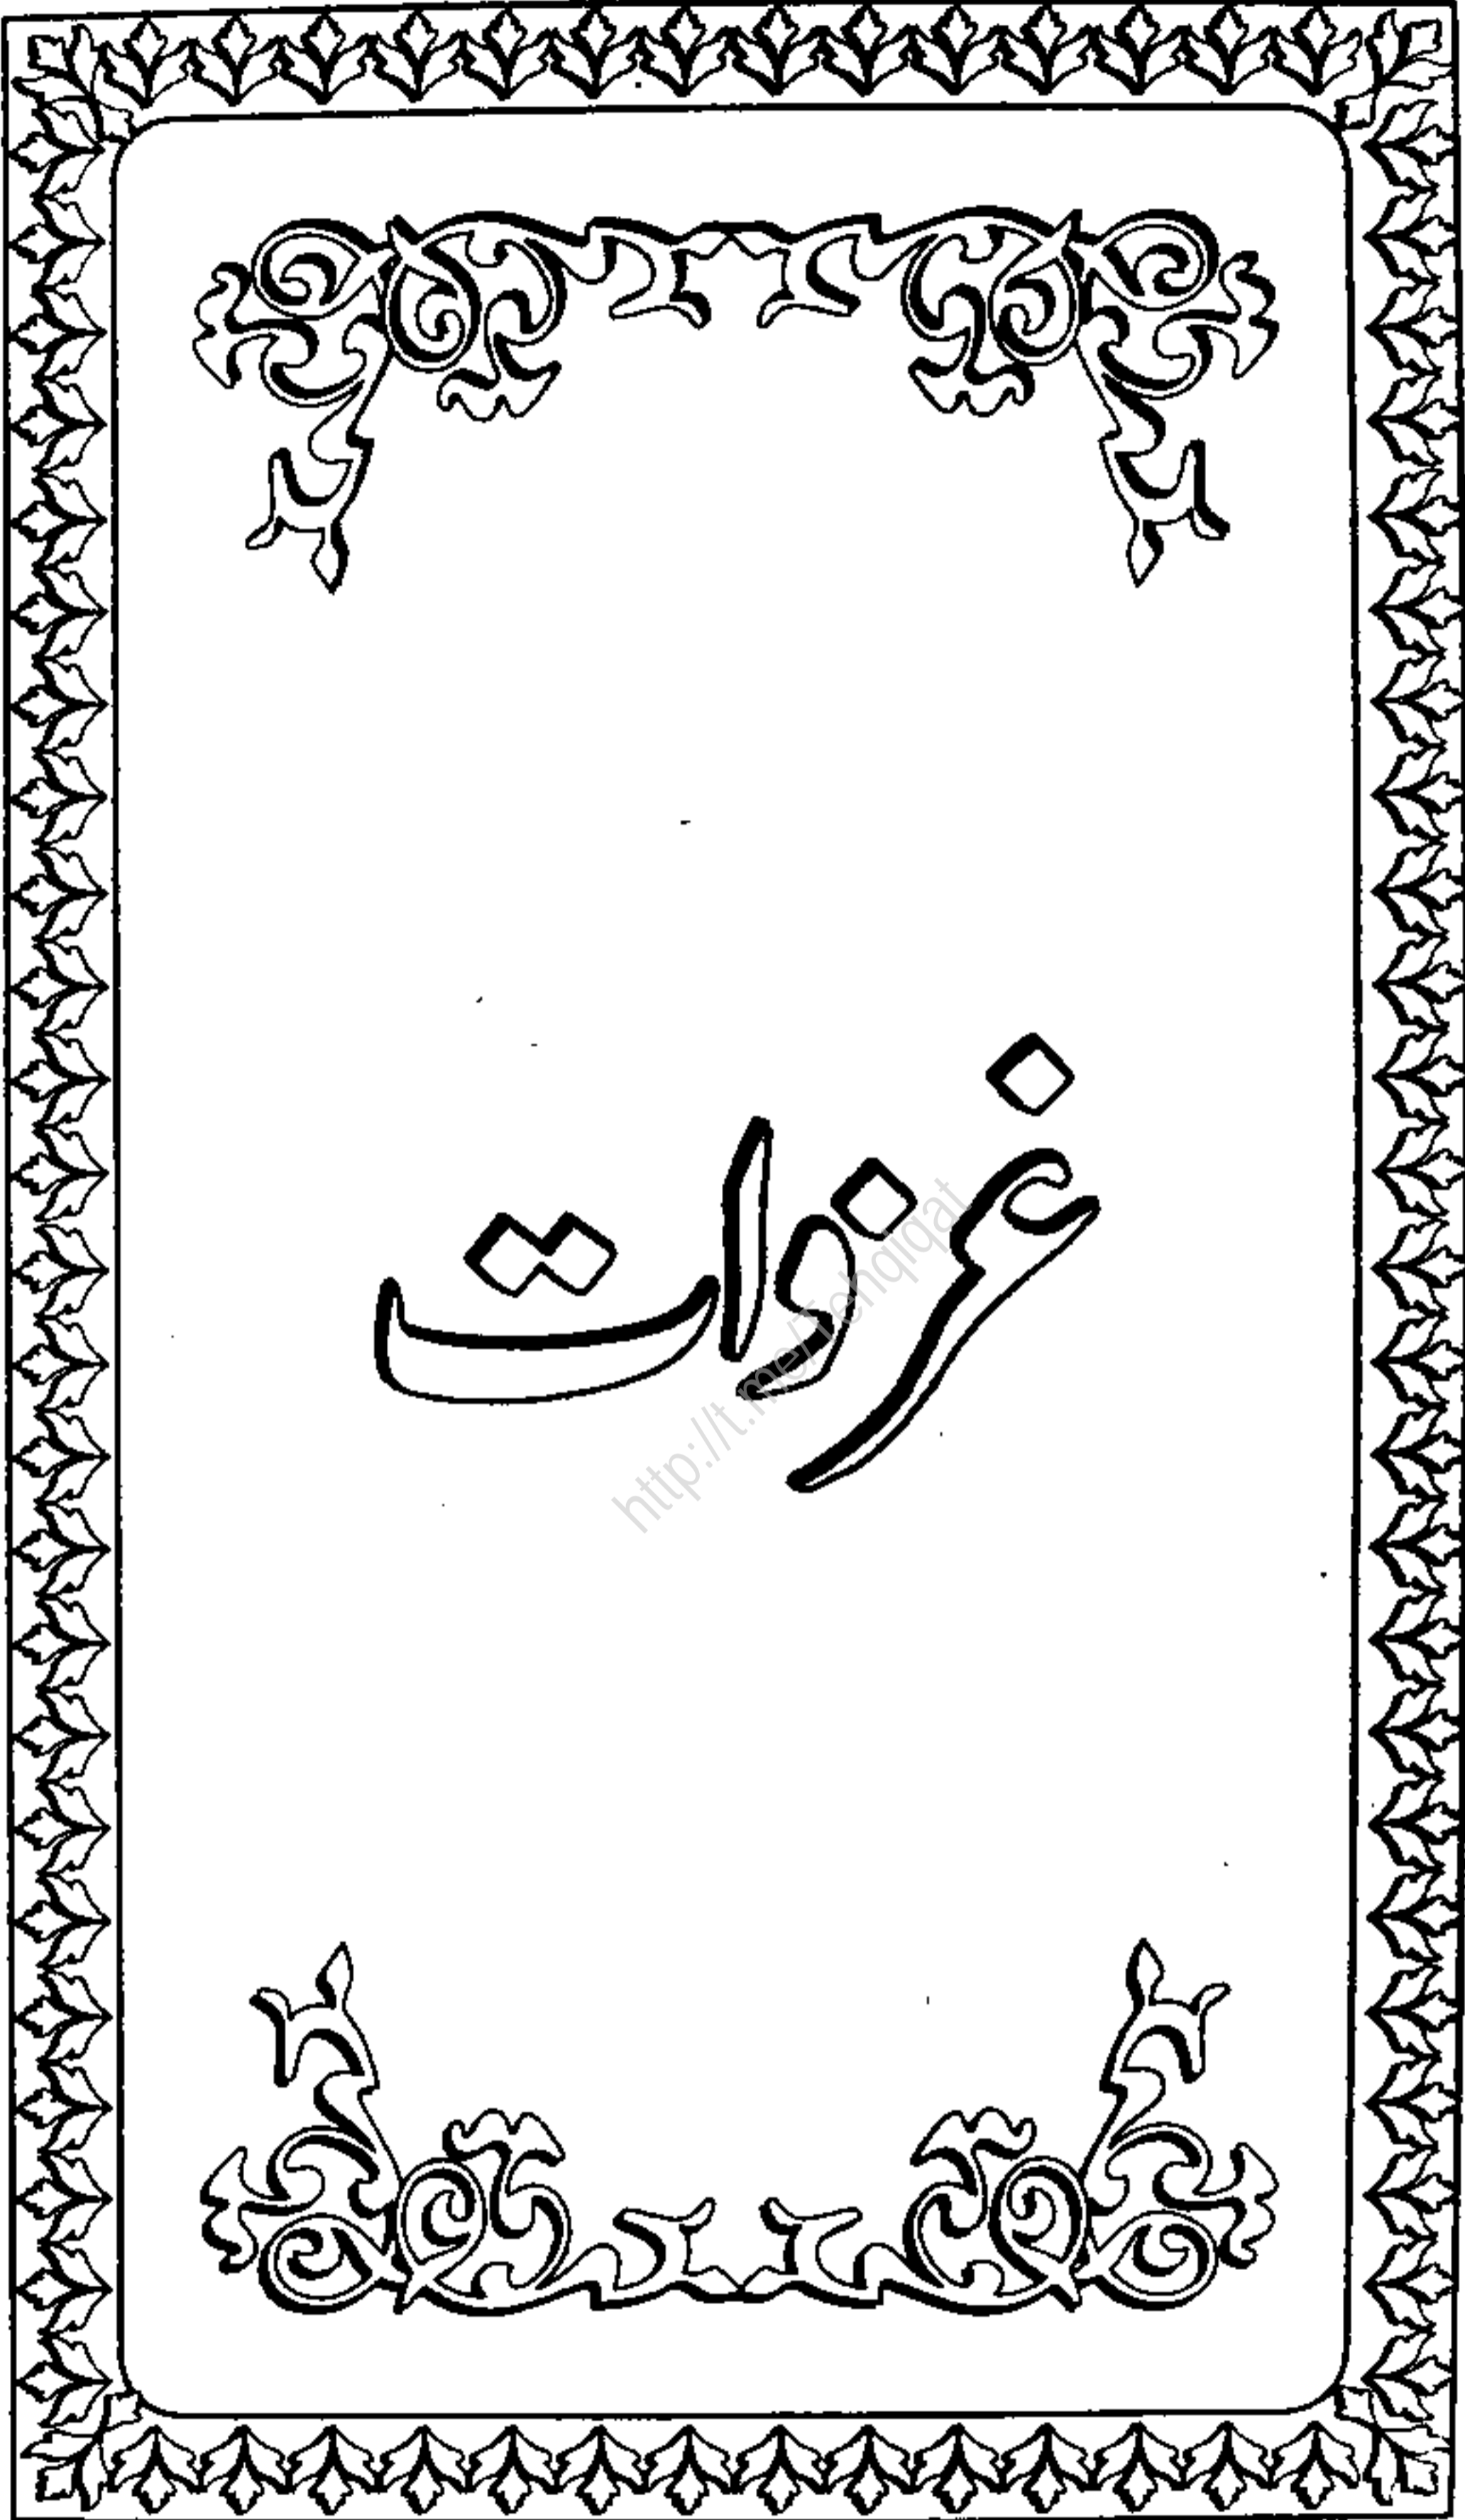 غزوات
http://t.me/Tehqiqat